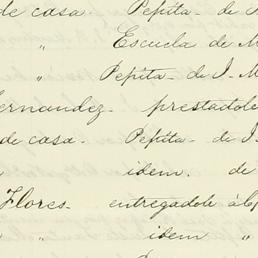 de casa. Pepita - de
" Escuela de M
" Pepita - de I. M
ernandez - prestadole
de casa. Pepita - de I.
" idem. de
Flores - entregadole à
" idem "